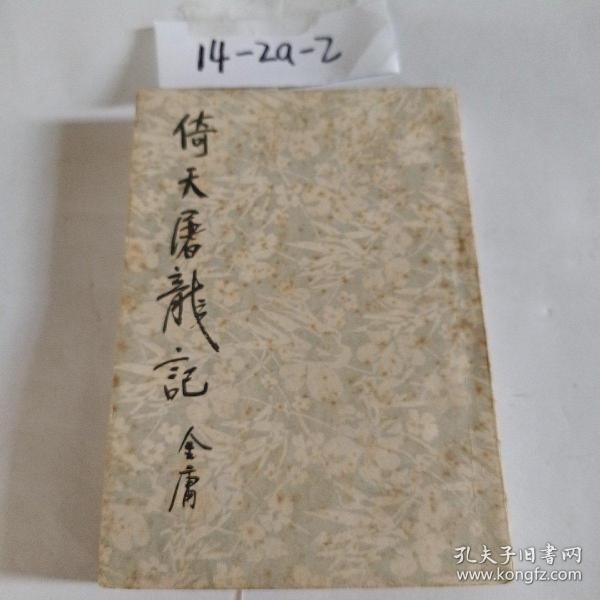 14-2a-2
倚天屠龍記
金庸
孔夫子旧书网
www.kongfz.com